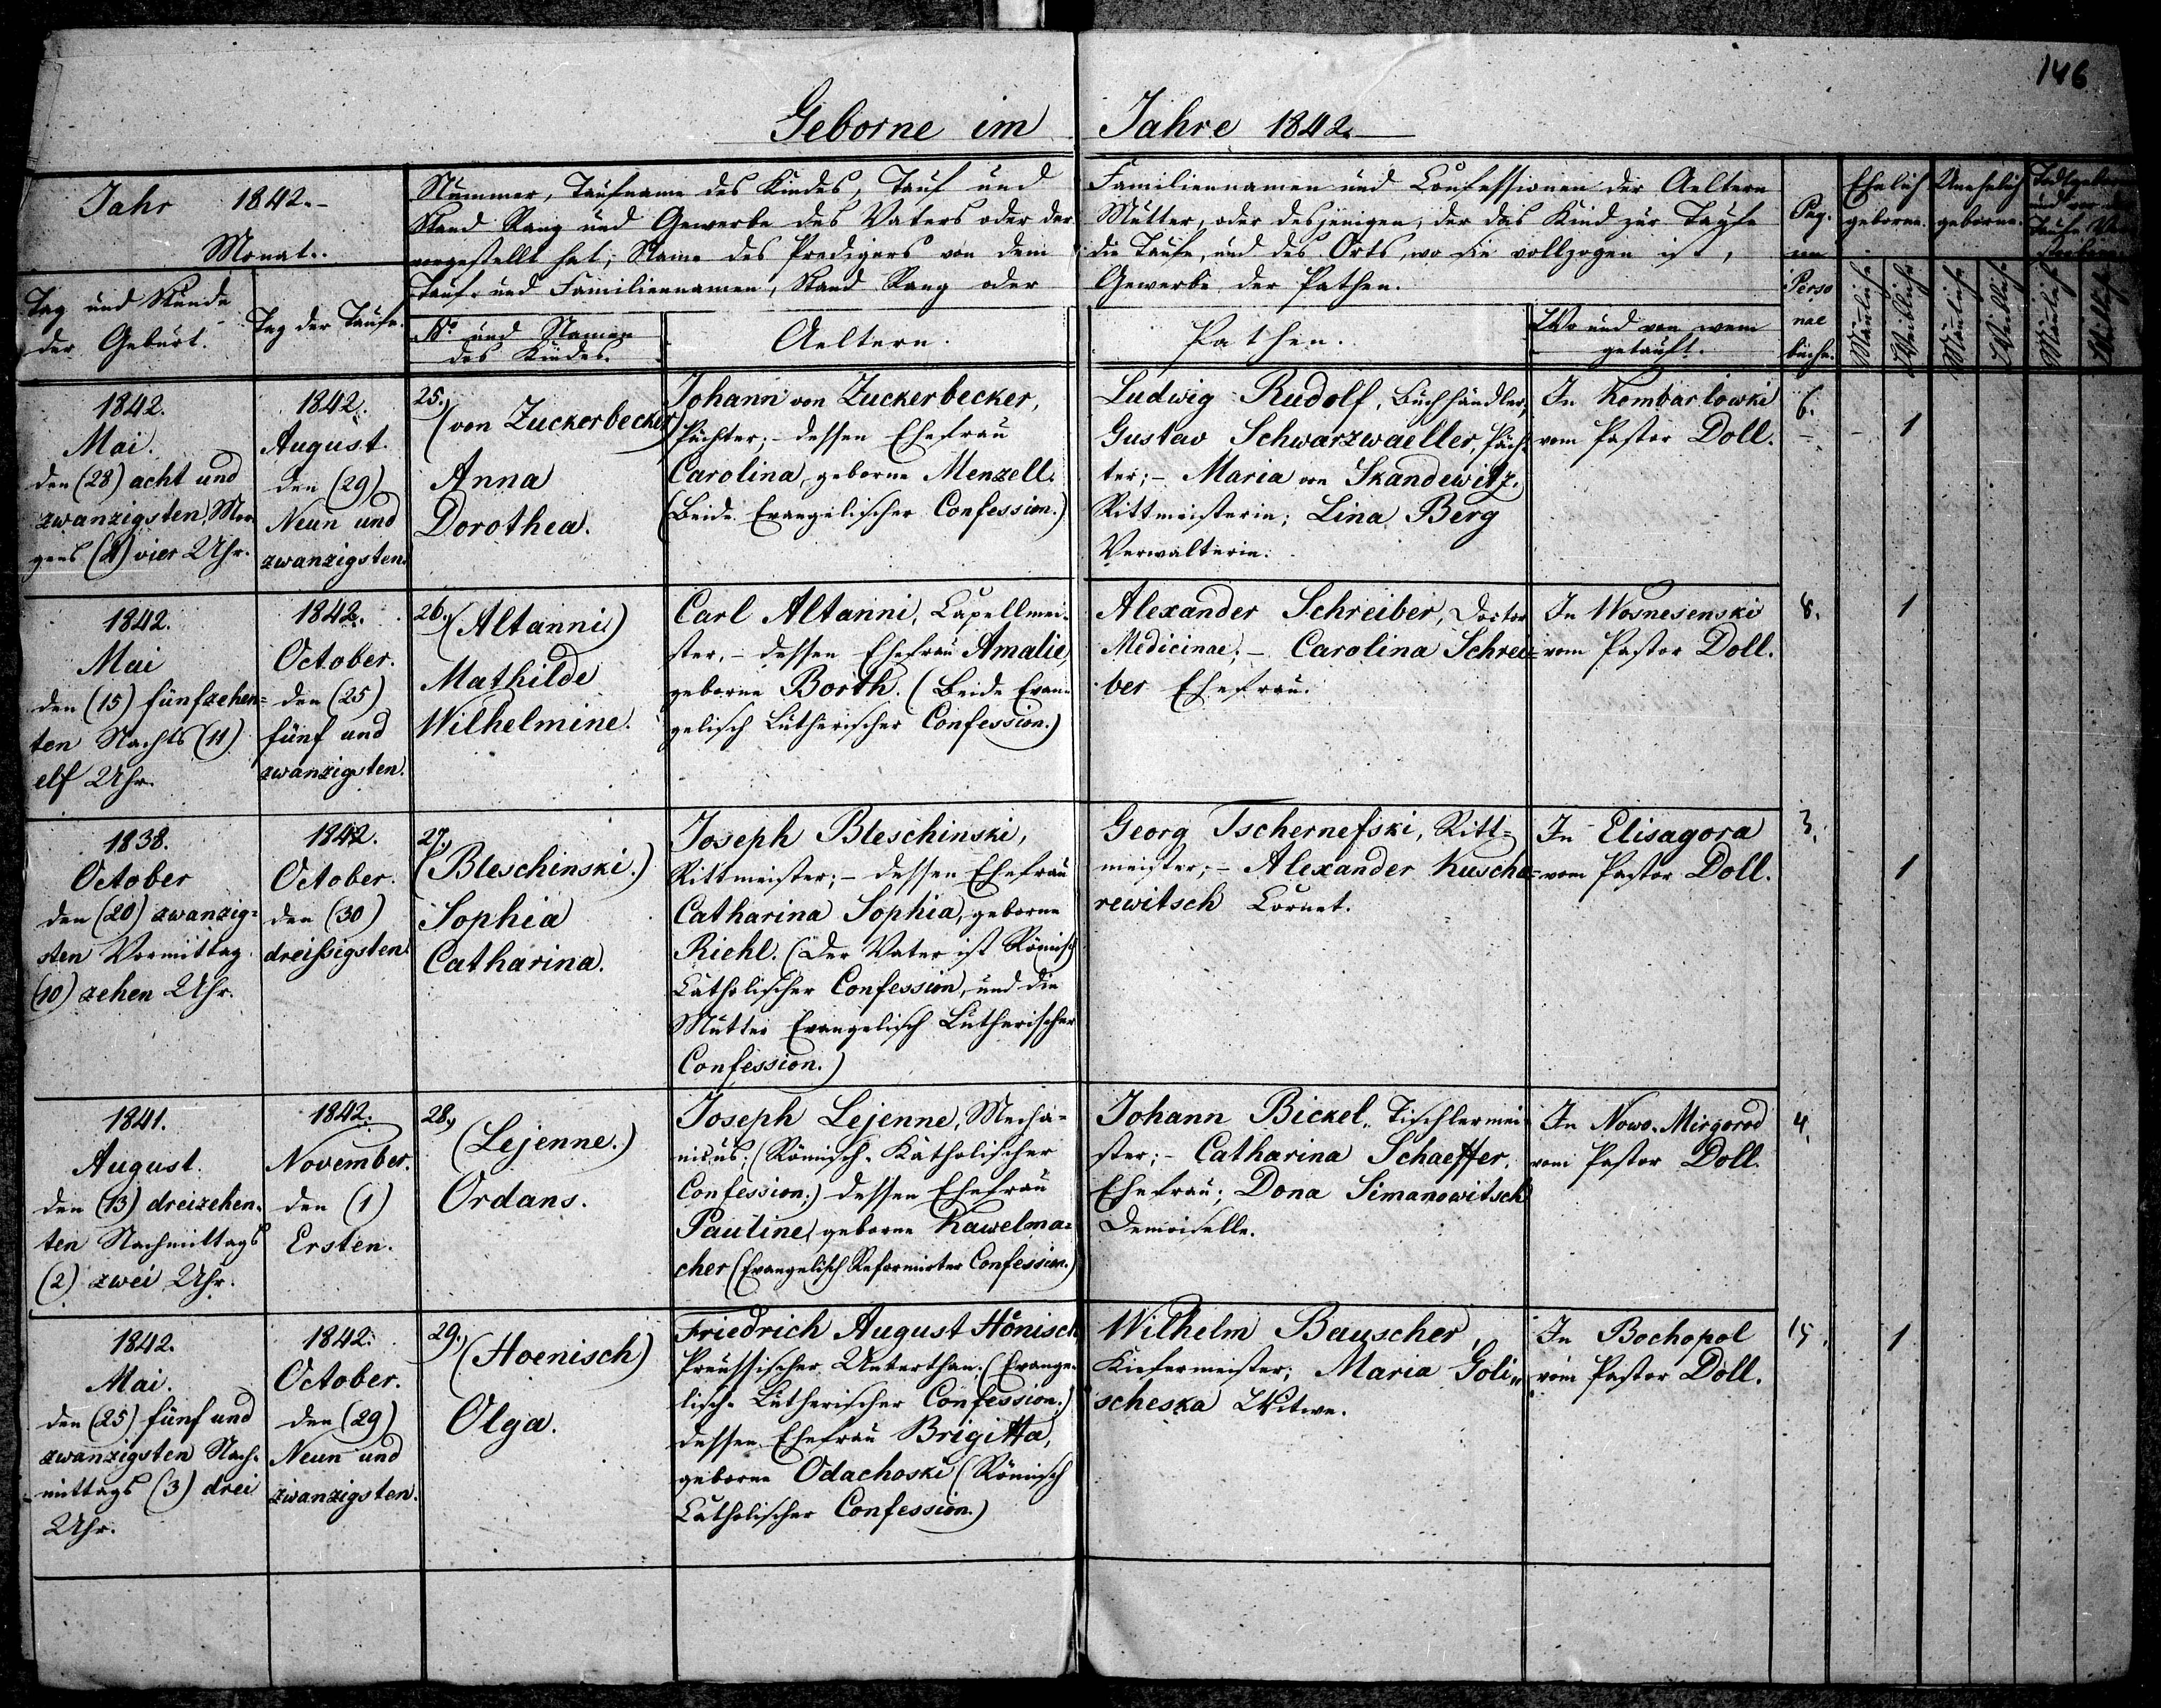 146
Geborne im Jahre 1842.
Jahr 1842.
Monat.
Tag und Stunde
der Geburt.
Tag der Taufe.
Nummer, Taufname des Kindes, Tauf und Familiennamen und Confessionen der Aeltern
Stand Rang und Gewerbe des Vaters oder der Mutter, oder desjenigen, der das Kind zur Taufe
vorgestellt hat; Name des Predigers von dem die Taufe, und des Orts, wo sie vollzogen ist,
Tauf- und Familiennamen, Stand Rang oder Gewerbe der Pathen.
No und Namen
des Kindes.
Aeltern.
Pathen.
Wo und von wem
getauft.
Pag.
im
Perso
nal
buche.
Ehelich
geborne.
Unehelich
geborne.
Todtgeborne
und vor der
Taufe Ver
storbene
Männliche
Weibliche
Männliche
Weibliche
Männliche
Weibliche
1842.
Mai.
den (28) acht und
zwanzigsten, Mor-
gens (4) vier Uhr.
1842.
August.
den (29)
Neun und
zwanzigsten.
25.,
(von Zuckerbecker)
Anna
Dorothea.
Johann von Zuckerbecker,
Pächter; - dessen Ehefrau
Carolina, geborne Menzell.
(Beide Evangelischer Confession.)
Ludwig Rudolf, Buchhändler,
Gustav Schwarzwaeller, Päch-
ter; - Maria von Skandewitz,
Rittmeisterin; Lina Berg
Verwalterin.
In Kombarlowki
vom Pastor Doll.
6.
1
1842.
Mai
den (15) fünfzehen=
ten Nachts (11)
elf Uhr.
1842.
October.
den (25)
fünf und
zwanzigsten.
26., (Altanni)
Mathilde
Wilhelmine.
Carl Altanni, Capellmei-
ster, - dessen Ehefrau Amalie,
geborne Borth. (Beide Evan-
gelisch Lutherischer Confession.)
Alexander Schreiber, Doctor
Medicinae; - Carolina Schrei=
ber Ehefrau.
In Wosnesenski
vom Pastor Doll.
8.
1
1838.
October
den (20) zwanzig=
sten Vormittag
(10) zehen Uhr.
1842.
October.
den (30)
dreißigsten.
27.,
(Bleschinski.)
Sophia
Catharina.
Joseph Bleschinski,
Rittmeister; - dessen Ehefrau
Catharina Sophia, geborne
Riehl. (Der Vater ist Römisch
Catholischer Confession, und die
Mutter Evangelisch Lutherischer
Confession.)
Georg Tschernefski, Ritt=
meister; - Alexander Kuscha=
rewitsch Cornet.
In Elisagora
vom Pastor Doll.
3.
1
1841.
August.
den (13) dreizehen-
ten Nachmittags
(2) zwei Uhr.
1842.
November.
den (1)
Ersten.
28.,
(Lejenne.)
Ordans.
Joseph Lejenne, Mecha-
nicus; (Römisch-Katholischer
Confession.) dessen Ehefrau
Pauline, geborne Kawelma=
cher (Evangelisch Reformirter Confession.)
Johann Bickel, Tischlermei-
ster; - Catharina Schaeffer,
Ehefrau; Dona Simanowitsch
Demoiselle.
In Nowo-Mirgorod
vom Pastor Doll.
4.
1842.
Mai.
den (25) fünf und
zwanzigsten Nach-
mittags (3) drei
Uhr.
1842.
October.
den (29)
Neun und
zwanzigsten.
29., (Hoenisch)
Olga.
Friedrich August Hönisch
Preussischer Unterthan; (Evange-
lisch-Lutherischer Confession.)
dessen Ehefrau Brigitta,
geborne Odachoski (Römisch
Catholischer Confession.)
Wilhelm Bauscher,
Kiefermeister; Maria Goli„
scheska Witwe.
In Bochopol
vom Pastor Doll.
15.
1